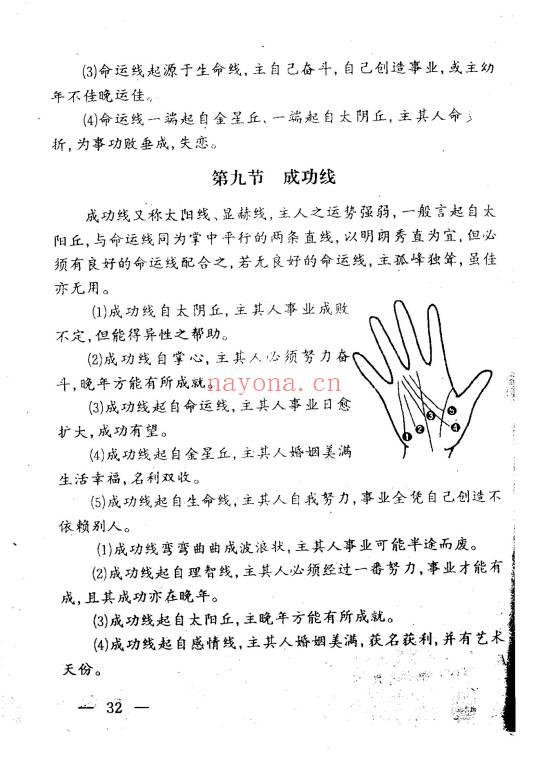 (3)命运线起源于生命线,主自己奋斗,自己创造事业,或主幼
年不佳晚运佳。
(4)命运线一端起自金星丘、一端起自太阴丘,主其人命
折,为事功败垂成,失恋。
第九节 成功线
成功线又称太阳线、显赫线,主人之运势强弱,一般言起自太
阳丘,与命运线同为掌中平行的两条直线,以明朗秀直为宜,但必
须有良好的命运线配合之,若无良好的命运线,主孤峰独耸,虽佳
亦无用。
(1)成功线自太阴丘,主其人事业成败
不定,但能得异性之帮助。
(2)成功线自掌心,主其人必须努力奋
斗,晚年方能有所成就
(3)成功线起自命运线,主其人事业日愈
扩大,成功有望。
(4)成功线起自金星丘,主其人婚姻美满
生活幸福,名利双收。
(5)成功线起自生命线,主其人自我努力,事业全凭自己创造不
依赖别人。
(1)成功线弯弯曲曲成波浪状,主其人事业可能半途而废。
(2)成功线起自理智线,主其人必须经过一番努力,事业才能有
成,且其成功亦在晚年。
(3)成功线起自太阳丘,主晚年方能有所成就。
(4)成功线起自感情线,主其人婚姻美满,获名获利,并有艺术
天份。
— 32 —
nayona.cn
❶ ❷ ❸ ❹ ❺